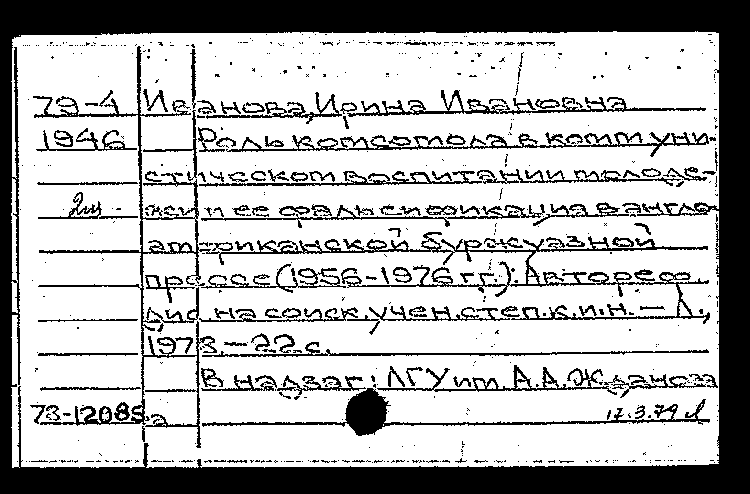 79-4 Иванова, Ирина Ивановна
1946 Роль комсомола в коммуни-
стическом воспитании молоде-
2ш жи и ее фальсификация в англо-
американской буржуазной
прессе (1956-1976 г.г.): Автореф.
дис. на соиск. учен. степ. к.и.н. — Л.,
1978. — 22 с.
В надзаг: ЛГУ им. А.А. Жданова
78-12085а 17.3.79 л